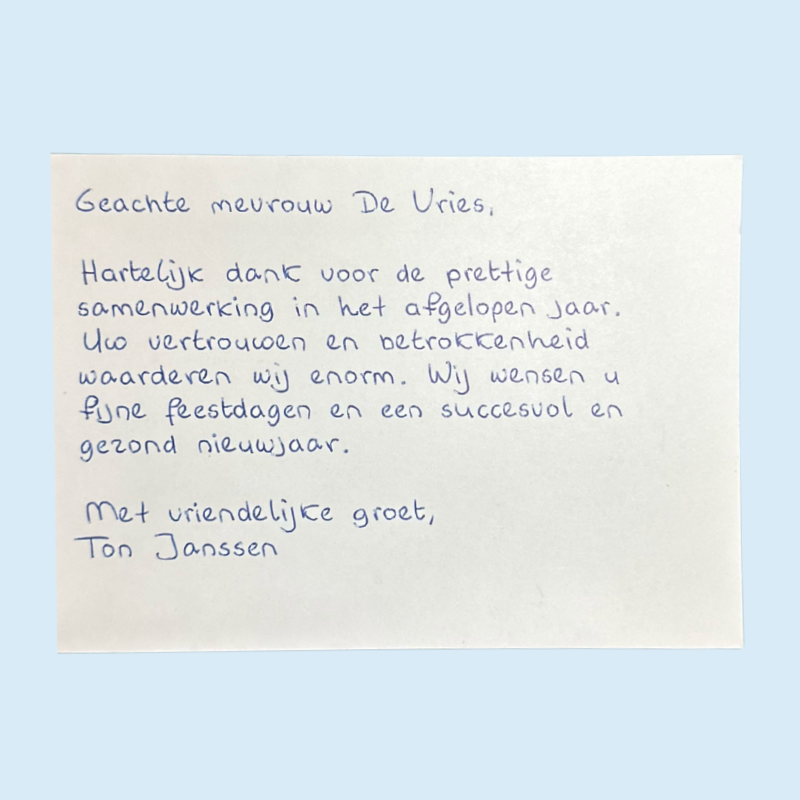 Geachte mevrouw De Vries,
Hartelijk dank voor de prettige
samenwerking in het afgelopen jaar.
Uw vertrouwen en betrokkenheid
waarderen wij enorm. Wij wensen u
fijne feestdagen en een succesvol en
gezond nieuwjaar.
Met vriendelijke groet,
Ton Janssen